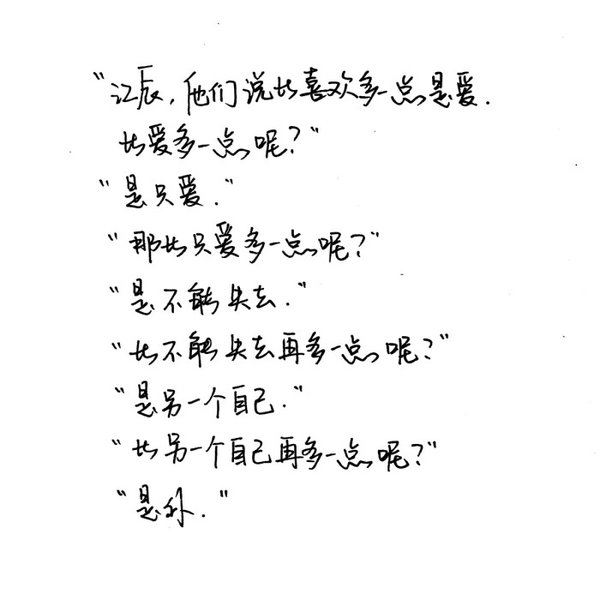 "江辰,他们说比喜欢多一点是爱.
比爱多一点呢?"
"是只爱."
"那比只爱多一点呢?"
"是不能失去."
"比不能失去再多一点呢?"
"是另一个自己."
"比另一个自己再多一点呢?"
"是你."